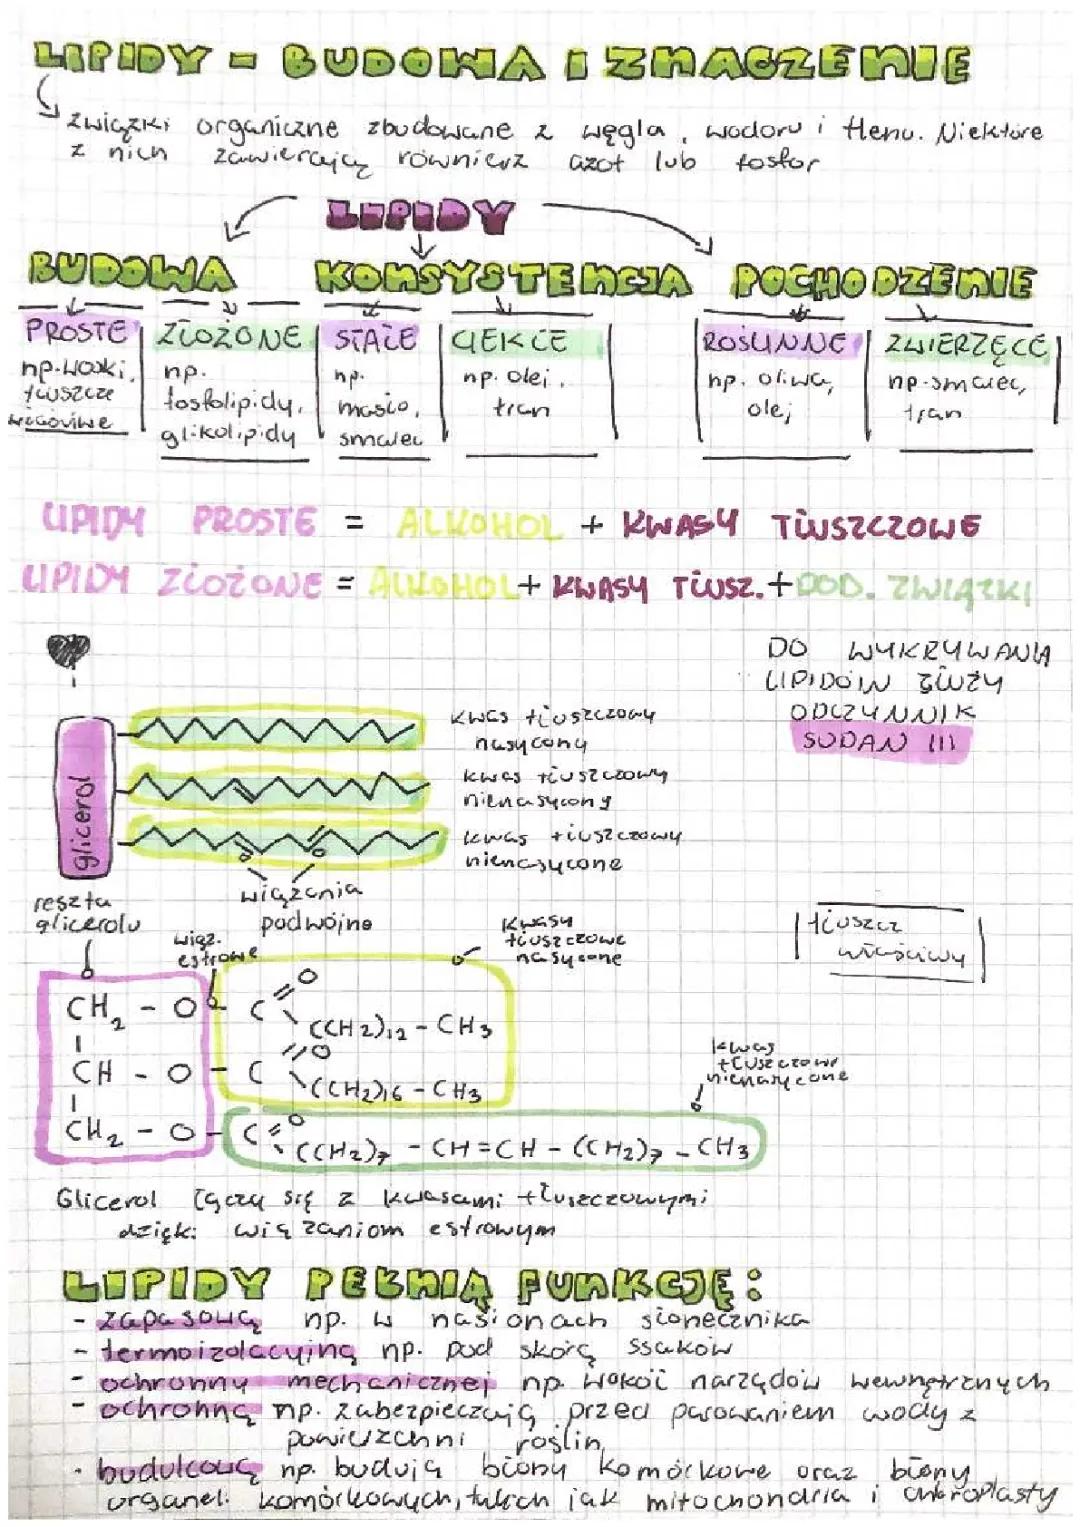 LIPIDY - BUDOWA I ZNACZENIE
związki organiczne zbudowane z węgla, wodoru i tlenu. Niektóre
z nich zawierają równierz azot lub fosfor
LIPIDY
BUDOWA KONSYSTENCJA POCHODZENIE
PROSTE ZŁOŻONE STAŁE CIEKŁE ROŚLINNE ZWIERZĘCE
np. woski, np. np. np. olej, np. oliwa, np. smalec,
tłuszcze fosfolipidy, masło, tran olej tran
właściwe glikolipidy smalec
LIPIDY PROSTE = ALKOHOL + KWASY TŁUSZCZOWE
LIPIDY ZŁOŻONE = ALKOHOL + KWASY TŁUSZ. + DOD. ZWIĄZKI
DO WYKRYWANIA
LIPIDÓW SŁUŻY
ODCZYNNIK
SUDAN III
glicerol
kwas tłuszczowy
nasycony
kwas tłuszczowy
nienasycony
kwas tłuszczowy
nienasycone
wiązania
podwójne
reszta
glicerolu
wiąz.
estrowe
kwasy
tłuszczowe
nasycone
tłuszcz
właściwy
CH2 - O C =O
(CH2)12 - CH3
CH - O - C =O
(CH2)16 - CH3
kwas
tłuszczowe
nienasycone
CH2 - O - C =O
(CH2)7 - CH = CH - (CH2)7 - CH3
Glicerol łączy się z kwasami tłuszczowymi
dzięki wiązaniom estrowym
LIPIDY PEŁNIĄ FUNKCJĘ:
- zapasową np. w nasionach słonecznika
- termoizolacyjną np. pod skórą ssaków
- ochronny mechanicznej np. wokół narządów wewnętrznych
- ochronną np. zabezpieczają przed parowaniem wody z
powierzchni roślin
- budulcową np. budują błony komórkowe oraz błony
organelli komórkowych, takich jak mitochondria i chloroplasty